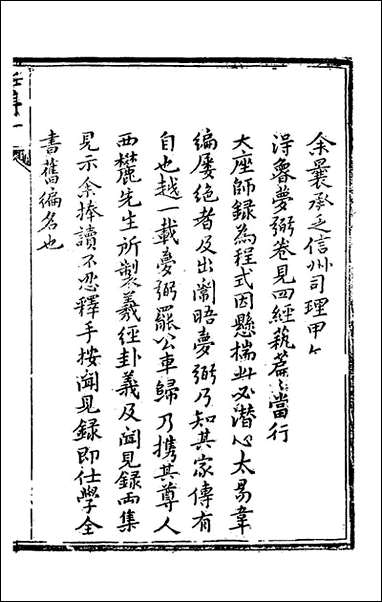 余曩承乏信州司理甲午
浔魯夢弼卷見四經萟篇〻當行
大座師録為程式因懸揣此必潜心太易韋
編屡绝者及出闈晤夢弼乃知其家傳有
自也越一載夢弼罷公車歸乃携其尊人
西麓先生所製羲經卦義及闻見録两集
見示余捧讀不忍釋手按闻見録即仕學全
書舊編名也